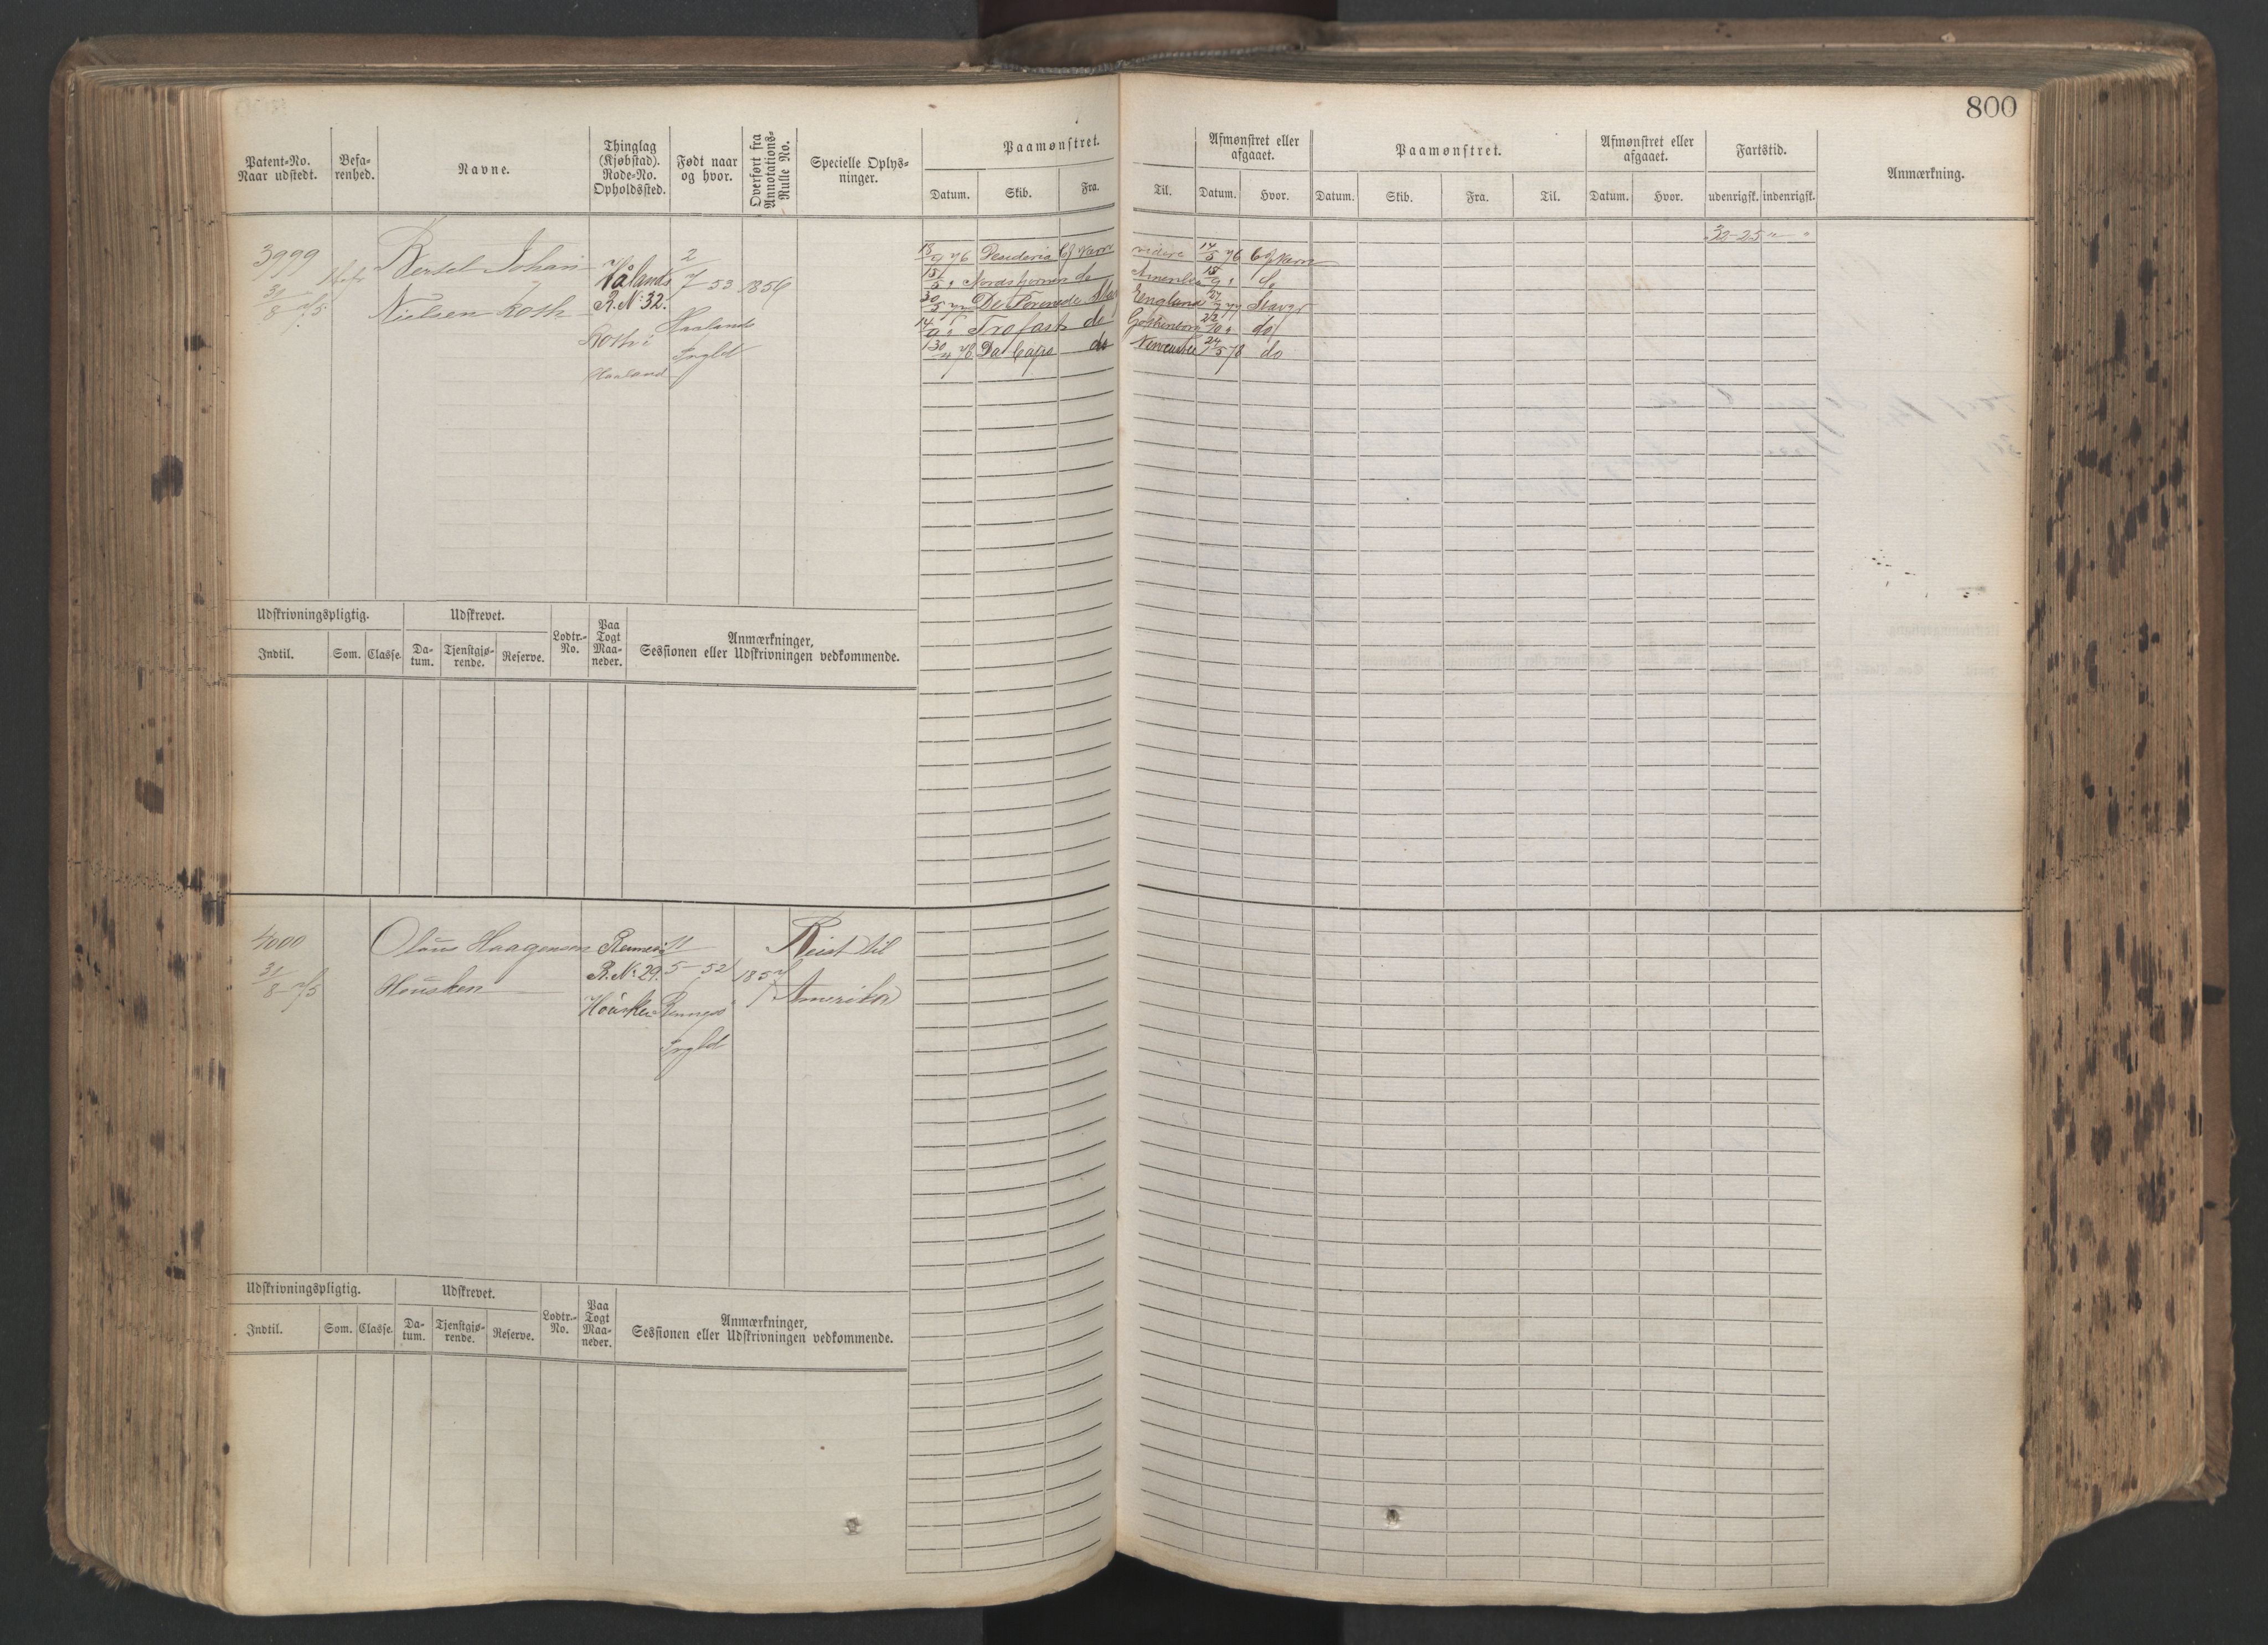 800
Patent-No.
Naar udstedt.
Befa-
renhed.
Navne.
Thinglag
(Kjøbstad).
Rode-No.
Opholdssted.
Født naar
og hvor.
Overført fra
Annotations-
Rulle No.
Specielle Oplys-
ninger.
Paamønstret.
Datum. Skib. Fra. Til.
Afmønstret eller
afgaaet.
Datum. Hvor.
Paamønstret.
Datum. Skib. Fra. Til.
Afmønstret eller
afgaaet.
Datum. Hvor.
Fartstid.
udenrigsk. indenrigsk.
Anmærkning.
3999
31/8 75
Bertel Johan
Nielsen Roth
Håland
R. No 32.
Roth i
Haaland
2/7 53
Haalands
Prgld
1856
18/9 76
14/5 76
Nordstjernen do
18/9 " do
30/5 77 De Forenede
England 77 Stavgr
Trofast do
Gothenborg 22/10 " do
30/4 78 Da Capo do
Newcastle 24/5 78 do
32-25 " "
Udskrivningspligtig.
Indtil. Som. Classe.
Udskrevet.
Da-
tum.
Tjenstgjø-
rende.
Reserve.
Lodtr.-
No.
Paa
Togt
Maa-
neder.
Anmærkninger,
Sessionen eller Udskrivningen vedkommende.
4000
31/8 75
Olaus Haagensen
Housken
Rennesø
R. No 29.
Housken
11/5-52
Rennesø
Prgld
1857
Reist til
Amerika
Udskrivningspligtig.
Indtil. Som. Classe.
Udskrevet.
Da-
tum.
Tjenstgjø-
rende.
Reserve.
Lodtr.-
No.
Paa
Togt
Maa-
neder.
Anmærkninger,
Sessionen eller Udskrivningen vedkommende.